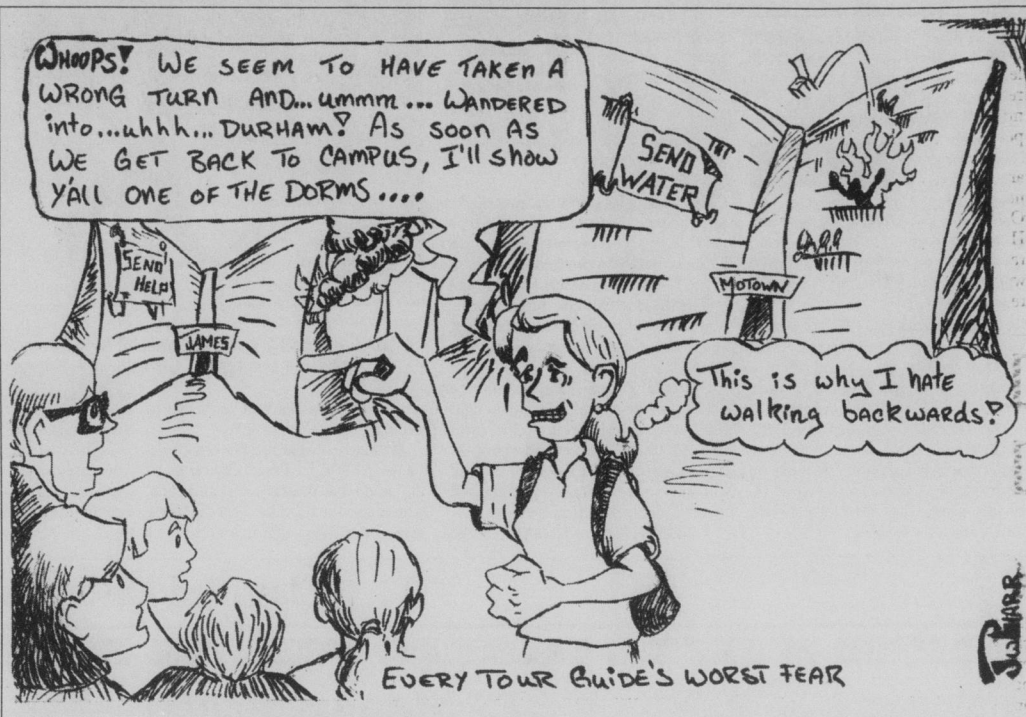 WHOOPS! WE SEEM TO HAVE TAKEN A
WRONG TURN AND...ummm... WANDERED
into...uhhh... DURHAM! AS SOON AS
WE GET BACK TO CAMPUS, I'll show
Y'ALL ONE OF THE DORMS....
SEND
WATER
SEND
HELP
JAMES
MOTOWN
This is why I hate
walking backwards!
EVERY TOUR GUIDE'S WORST FEAR